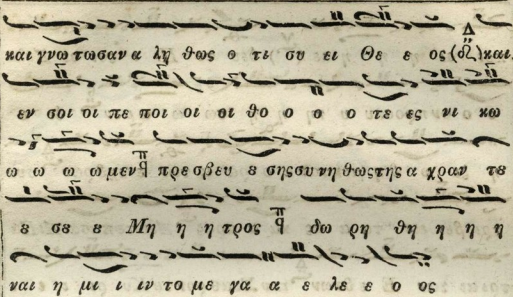 και γνω τωσαν α λη θως ο τι συ ει Θε ε ος και
εν σοι οι πε ποι οι οι θο ο ο ο τε ες νι κω
ω ω ω ω μεν πρεσβευ ε σης συ νη θως της α χραν τε
ε σε ε Μη η η τρος δω ρη θη η η η
ναι η μι ι ιν το με γα α ε λε ε ο ος